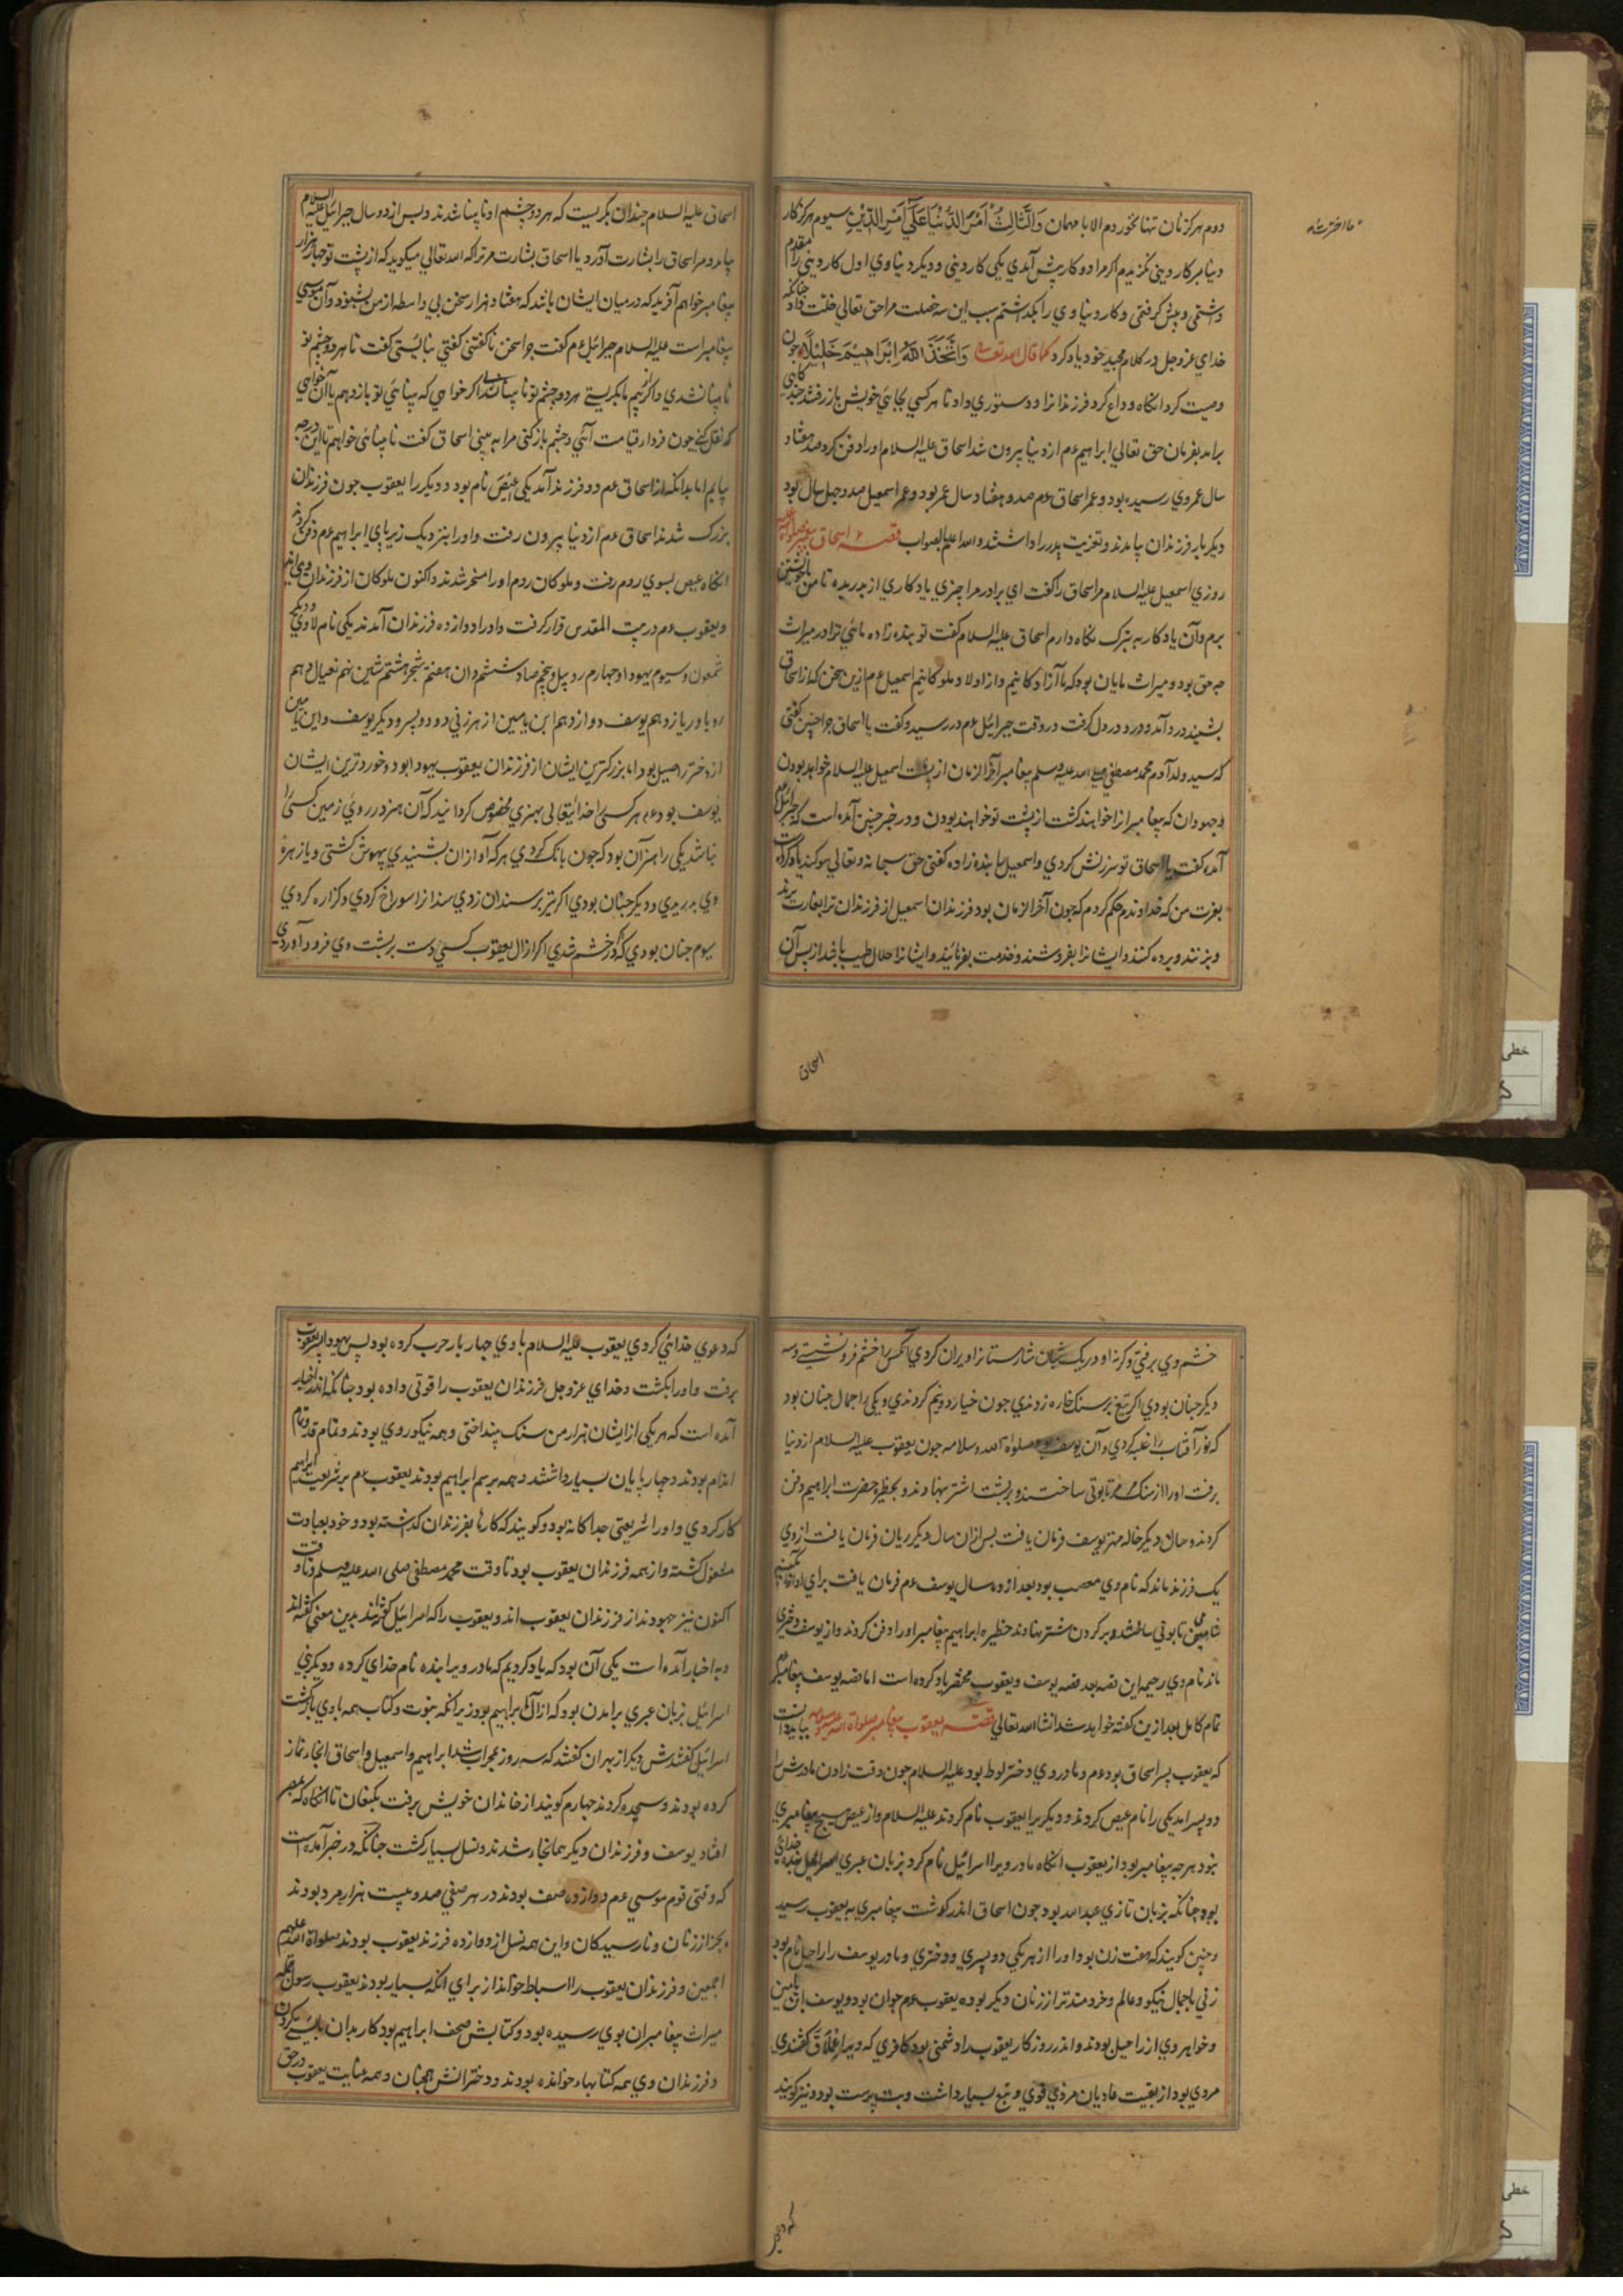 دوم هرکز نان تنها نخوردم الا با مهمان وَالثَّالِثُ اَمْرَ الدُّنْيَا عَلَي اَمْرِ الدِّيْنِ سیوم هرکز کار
دنیا بر کار دینی نکزیدم اکر مرا دو کار پیش آمدي یکي کار دیني و دیکر دنیاوي اول کار دیني را مقدم
داشتمي و پیش کرفتمي و کار دنیاوي را بکذاشتم سبب این سه خصلت مرا حق تعالي خلت داد چنانکه
خداي عزوجل در کلام مجید خود یاد کرد کما قال الله تعالی وَاتَّخَذَ اللهُ اِبْرَاهِيْمَ خَلِيْلًا چون
وصیت کرد انکاه وداع کرد فرزندانرا و دستوري داد تا هر کسي بجائي خویش باز رفتند چند کاهي
برامد بفرمان حق تعالي ابراهیم عم از دنیا بیرون شد اسحاق علیه السلام او را دفن کرد صد هفتاد
سال عمر وي رسیده بود و عمر اسحاق عم صد و هشتاد سال عمر بود و عمر اسمعیل صد و چهل سال بود
دیکر بار فرزندان بیامدند و تعزیت پدر را داشتند و الله اعلم بالصواب قصه اسحاق پیغمبر صلواة الله علیه
روزي اسمعیل علیه السلام مر اسحاق را کفت اي برادر مرا چیزي یادکاري از پدر بده تا من با خویشتن
برم و آن یادکار به تبرک نکاه دارم اسحاق علیه السلام کفت تو بنده زاده مائي ترا در میراث
چه حق بود و میراث مایان بود که ما آزادکانیم و از اولاد ملوکانیم اسمعیل عم ازین سخن که از اسحاق
بشنید درد آمد و درد در دل کرفت در وقت جبرائیل عم در رسید و کفت یا اسحاق چرا چنین کفتي
که سید ولد آدم محمد مصطفي صلي الله علیه وسلم پیغامبر آخر الزمان از پشت اسمعیل علیه السلام خواهد بودن
و جهودان که پیغامبر از خواهند کشت از پشت تو خواهند بودن و در خبر چنین آمده است که جبرائیل
آمده کفت یا اسحاق تو سرزنش کردي و اسمعیل را بنده زاده کفتي حق سبحانه و تعالي سوکند یاد کرده است
بعزت من که خداوندم حکم کردم که چون آخر الزمان بود فرزندان اسمعیل از فرزندان ترا بغارت برند
و بزنند و برده کنند و ایشانرا بفروشند و خدمت بفرمایند و ایشانرا حلال طیب باشد از پس آن
اسحاق
اسحاق علیه السلام چندان بکریست که هر دو چشم او نابینا شدند و پس از دو سال جبرائیل علیه السلام
بیامد و مر اسحاق را بشارت آورد یا اسحاق بشارت مر ترا که الله تعالي میکوید که از پشت تو چهار هزار
پیغامبر خواهم آفرید که در میان ایشان باشد که هفتاد هزار سخن بي واسطه از من بشنود و آن موسي
پیغامبر است علیه السلام جبرائیل عم کفت چرا سخن ناکفتني کفتي نبایستي کفت تا هر دو چشم تو
نابینا نشدي و اکر نیم نابکریستے هر دو چشم تو نابینا شدي اکر خواهي که بینائي تو باز دهم یا آن خواهي
که نقل کني چون فردا قیامت آئي و چشم باز کني مرا به بیني اسحاق کفت نابینائي خواهم تا این درجه
بیابم اما بدانکه از اسحاق عم دو فرزند آمد یکي عیص نام بود و دیکر را یعقوب چون فرزندان
بزرک شدند اسحاق عم از دنیا بیرون رفت و او را بنزدیک زیر پاي ابراهیم عم دفن کردند
انکاه عیص بسوي روم رفت و ملوکان روم او را مسخر شدند و اکنون ملوکان از فرزندان وي اند
و یعقوب عم در بیت المقدس قرار کرفت و او را دوازده فرزندان آمدند یکي نام لاوي و دیکر
شمعون و سیوم یهودا و چهارم روبیل و پنجم صاد و ششم دان هفتم شجر هشتم شین نهم نعیال دهم
روبا و ر یازدهم یوسف دوازدهم ابن یامین از هر زني دو دو پسر و دیکر یوسف و ابن یامین
از دختر راحیل بود اما بزرکترین ایشان از فرزندان یعقوب یهودا بود و خوردترین ایشان
یوسف بود عم هر کسي را خدایتعالي بهنري مخصوص کردانید که آن هنر در روي زمین کسي را
نباشد یکي را هنر آن بود که چون بانک کردي هر که آواز آن بشنیدي بیهوش کشتي و یا زهره
وي بدریدي و دیکر چنان بودي اکر تیز بر سندان زدي سندانرا سوراخ کردي و کزاره کردي
سیوم چنان بودي که در خشم شدي اکر از آل یعقوب کسي دست بر پشت وي فرود آوردي
خشم وي برفتي و کرنه او در یک شبان شارستانرا ویران کردي آنکس را خشم فرو نشستے و سه
دیکر چنان بودي اکر تیغ بر سنک خاره زدندي چون خیار دو نیم کردندي و یکي را جمال چنان بود
که نور آفتاب را غلبه کردي و آن یوسف بود صلواة الله و سلامه چون یعقوب علیه السلام از دنیا
برفت او را از سنک مرمر تابوتي ساختند و بر پشت اشتر نهادند و بحظیره حضرت ابراهیم دفن
کردند و سال دیکر خاله مهتر یوسف فرمان یافت پس ازان سال دیکر ریان فرمان یافت از وي
یک فرزند ماند که نام وي مصعب بود بعد از ده سال یوسف عم فرمان یافت براي او از آبکینه
شامي تابوتي ساختند و بر کردن شتر نهادند حظیره ابراهیم پیغامبر او را دفن کردند و از یوسف دختري
ماند نام وي رحیمه این قصه بعد قصه یوسف و یعقوب مختصر یاد کرده است اما قصه یوسف پیغامبر عم
تمام کامل بعد ازین کفته خواهد شد انشا الله تعالي قصه یعقوب پیغامبر صلواة الله علیه وسلامه بباید دانست
که یعقوب پسر اسحاق بود عم و مادر وي دختر لوط بود علیه السلام چون وقت زادن مادرش را
دو پسر امد یکي را نام عیص کردند و دیکر یرا یعقوب نام کردند علیه السلام و از عیص هیچ پیغامبري
نبود هر چه پیغامبر بود از یعقوب انکاه مادر ویرا اسرائیل نام کرد بزبان عبري اسرائیل بنده خداي
بود چنانکه بزبان تازي عبدالله بود چون اسحاق اندر کوشت پیغامبري به یعقوب رسید
و چنین کویند که هفت زن بود او را از هر یکي دو پسري و دختري و مادر یوسف را راحیل نام بود
زني باجمال نیکو و عالم و خردمندتر از زنان دیکر بوده یعقوب عم جوان بود و یوسف ابن یامین
و خواهر وي از راحیل بودند و اندر روزکار یعقوب را دشمني بود کافري که ویرا عْلَاقَ کفتندي
مردي بود از بقیت عادیان مردي قوي و تبع بسیار داشت و بت پرست بود و نیز کویند
که دعوي
که دعوي خدائي کردي یعقوب علیه السلام با وي چهار بار حرب کرده بود پس یهودا پسر یعقوب
برفت و او را بکشت و خداي عزوجل فرزندان یعقوب را قوتي داده بود چنانکه اندر اخبار
آمده است که هر یکي از ایشان هزار من سنک بینداختي و همه نیکوروي بودند و تمام قد و تمام
اندام بودند و چهارپایان بسیار داشتند و همه بر سم ابراهیم بودند یعقوب عم بر شریعت ابراهیم
کار کردي و او را شریعتي جداکانه بود و کویند که کارها بفرزندان کذاشته بود و خود بعبادت
مشغول کشته و از همه فرزندان یعقوب بود تا وقت محمد مصطفي صلي الله علیه وسلم و تا وقت
اکنون نیز جهودند از فرزندان یعقوب اند و یعقوب را که اسرائیل کفتند بدین معني کفته اند
و به اخبار آمده است یکي آن بود که یاد کردیم که مادر ویرا بنده نام خداي کرده و دیکر بني
اسرائیل بزبان عبري برامدن بود که از آل ابراهیم بود زیرانکه نبوت و کتاب همه با وي بازکشت
اسرائیل کفتندش دیکر از بهر آن کفتند که سه روز بمحراب شد ابراهیم و اسمعیل و اسحاق انجا نماز
کرده بودند و سجده کردند چهارم کویند از خاندان خویش برفت بکنعان تا انکاه که بمصر
افتاد یوسف و فرزندان دیکر همانجا شدند و نسل بسیار کشت چنانکه در خبر آمده است
که وقتي قوم موسي عم دوازده صف بودند در هر صفي صد و بیست هزار مرد بودند
بجز از زنان و نارسیدکان و این همه نسل از دوازده فرزند یعقوب بودند صلواة الله علیهم
اجمعین و فرزندان یعقوب را اسباط خوانند از براي انکه بسیار بودند یعقوب رسول علیه
میراث پیغامبران بوي رسیده بود و کتابش صحف ابراهیم بود کار بدان بایستے کردن
و فرزندان وي همه کتابها خوانده بودند و دخترانش همچنان و همه عنایت یعقوب در حق
خطی